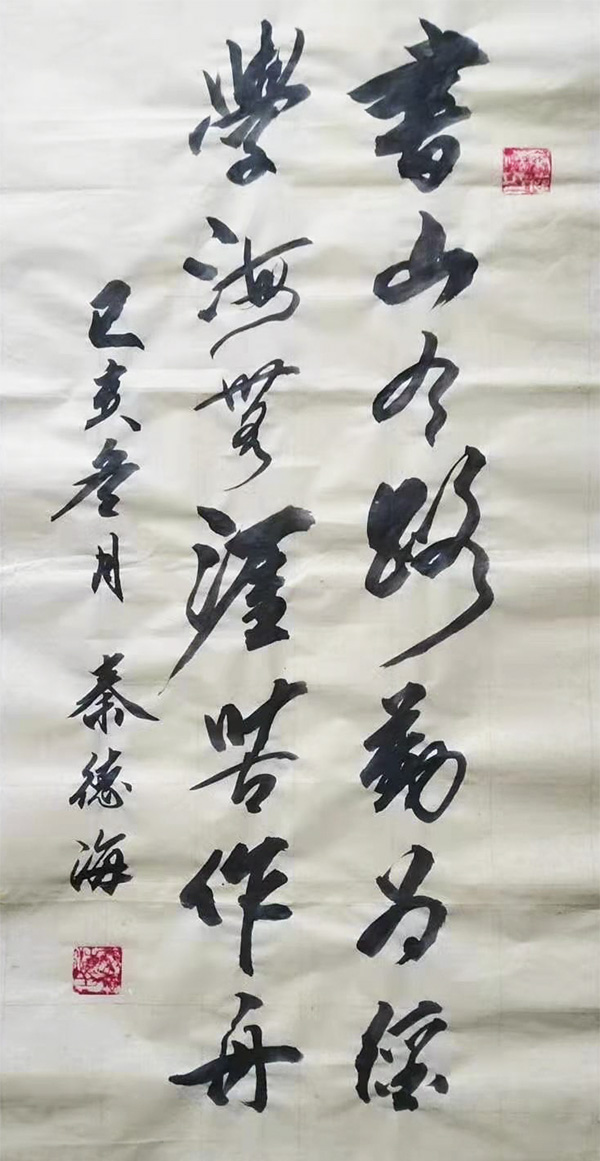 書山有路勤为徑
學海無涯苦作舟
己亥叁月 秦德海